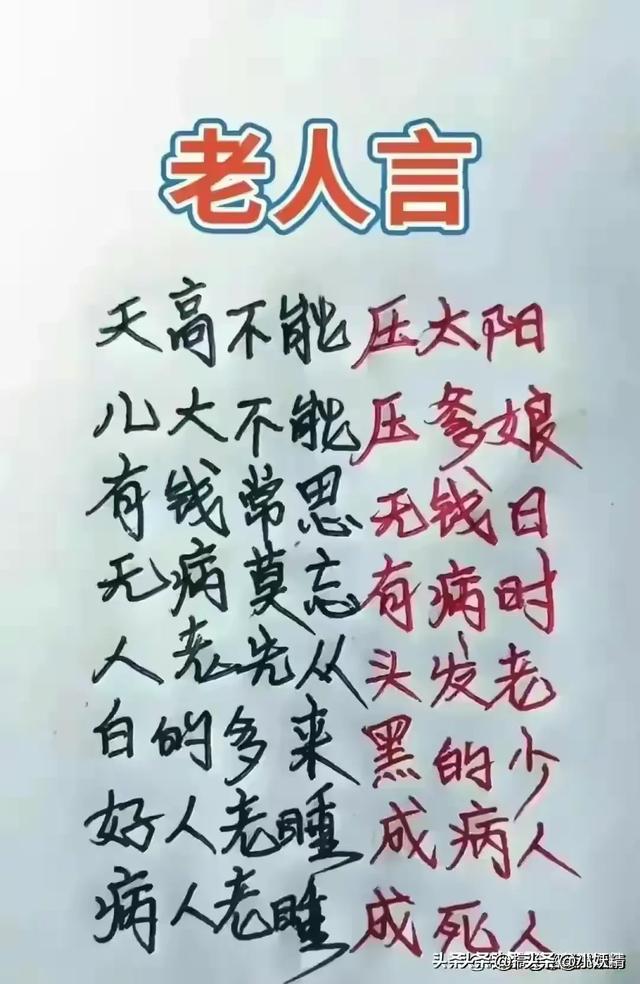 老人言
天高不能压太阳
儿大不能压爹娘
有钱常思无钱日
无病莫忘有病时
人老先从头发老
白的多来黑的少
好人老睡成病人
病人老睡成死人